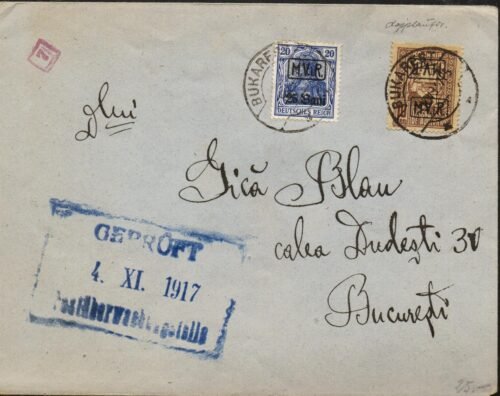 20 20
M.V.R
25 Bani
DEUTSCHES REICH
BUKAREST
M.V.R.
Dlui
Gică Blau
calea Dudeşti 30
Bucureşti
GEPRÜFT
4. XI. 1917
Postüberwachungsstelle
25.-